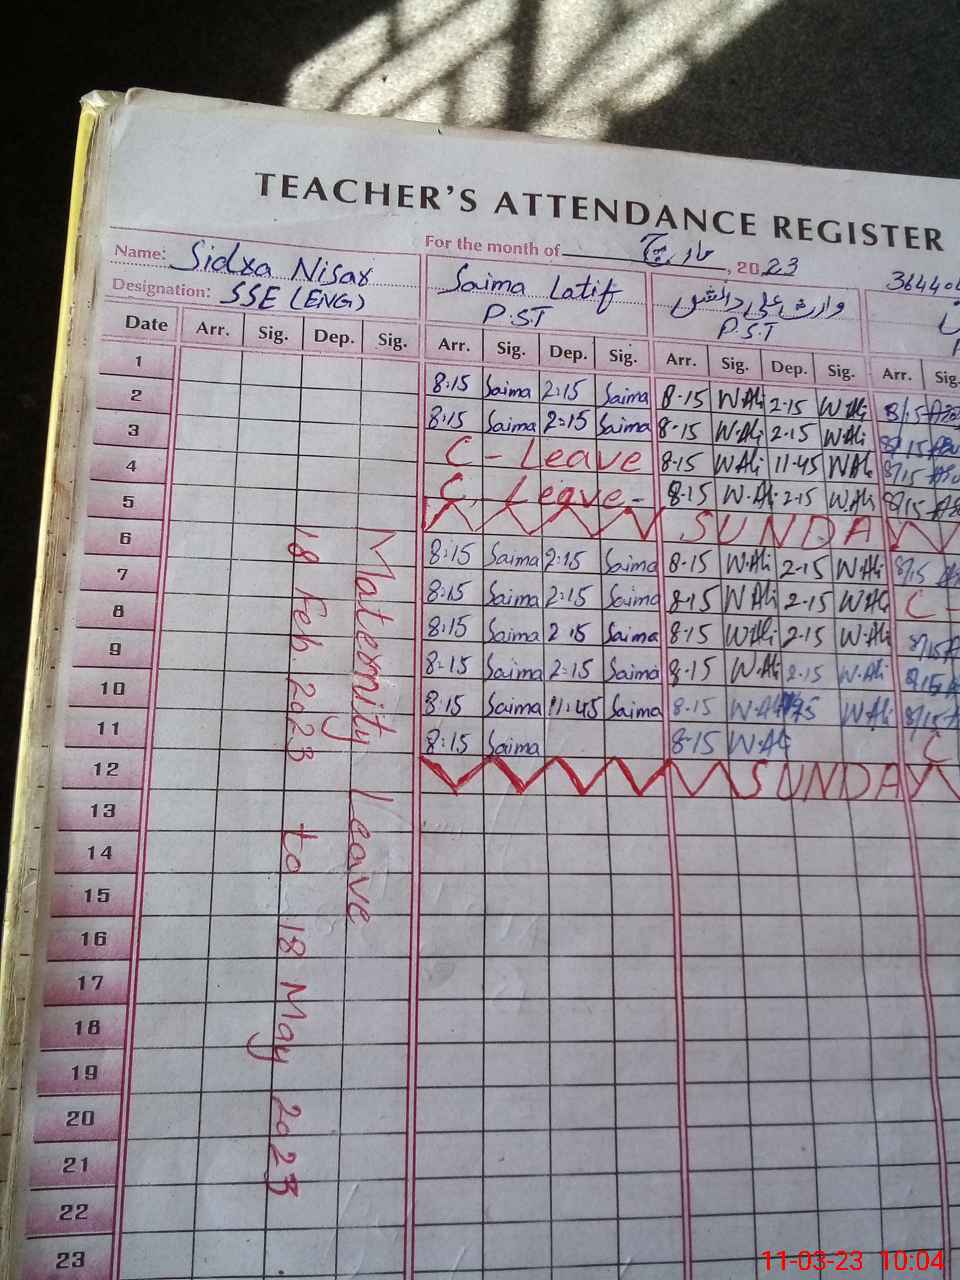 TEACHER'S ATTENDANCE REGISTER
For the month of مارچ , 2023
Name: Sidra Nisar
Designation: SSE (ENG)
Saima Latif
P.S.T
وارث علی دانش
P.S.T
Date Arr. Sig. Dep. Sig. Arr. Sig. Dep. Sig. Arr. Sig. Dep. Sig. Arr. Sig.
1 8:15 Saima 2:15 Saima 8-15 W.Ali 2-15 W.Ali 8/15
2 8:15 Saima 2:15 Saima 8-15 W.Ali 2-15 W.Ali 8/15
3 C - Leave 8-15 W.Ali 11-45 W.Ali 8/15
4 C - Leave - 8-15 W.Ali 2-15 W.Ali 8/15
5 SUNDA
6 8:15 Saima 2:15 Saima 8-15 W.Ali 2-15 W.Ali 8/15
7 8:15 Saima 2:15 Saima 8-15 W.Ali 2-15 W.Ali C -
8 8:15 Saima 2:15 Saima 8-15 W.Ali 2-15 W.Ali 8/15
9 8:15 Saima 2:15 Saima 8-15 W.Ali 2-15 W.Ali 8/15
10 8:15 Saima 11:45 Saima 8-15 W.Ali W.Ali 8/15
11 8:15 Saima 8-15 W.Ali C
12 SUNDAY
13
14
15
16
17
18
19
20
21
22
23
Maternity Leave
18 Feb. 2023 to 18 May 2023
11-03-23 10:04